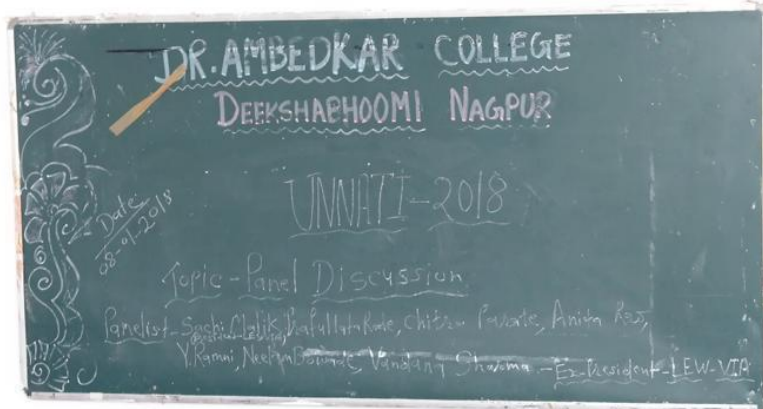 DR. AMBEDKAR COLLEGE
DEEKSHABHOOMI NAGPUR
UNNATI-2018
Date
08-01-2018
Topic - Panel Discussion
Panelist - Sashi Malik, Prafullata Rode, Chitra Parate, Anita Rao,
Y. Ramni, Neelam Bowade, Vandana Sharma - Ex-President-LEW-VIA